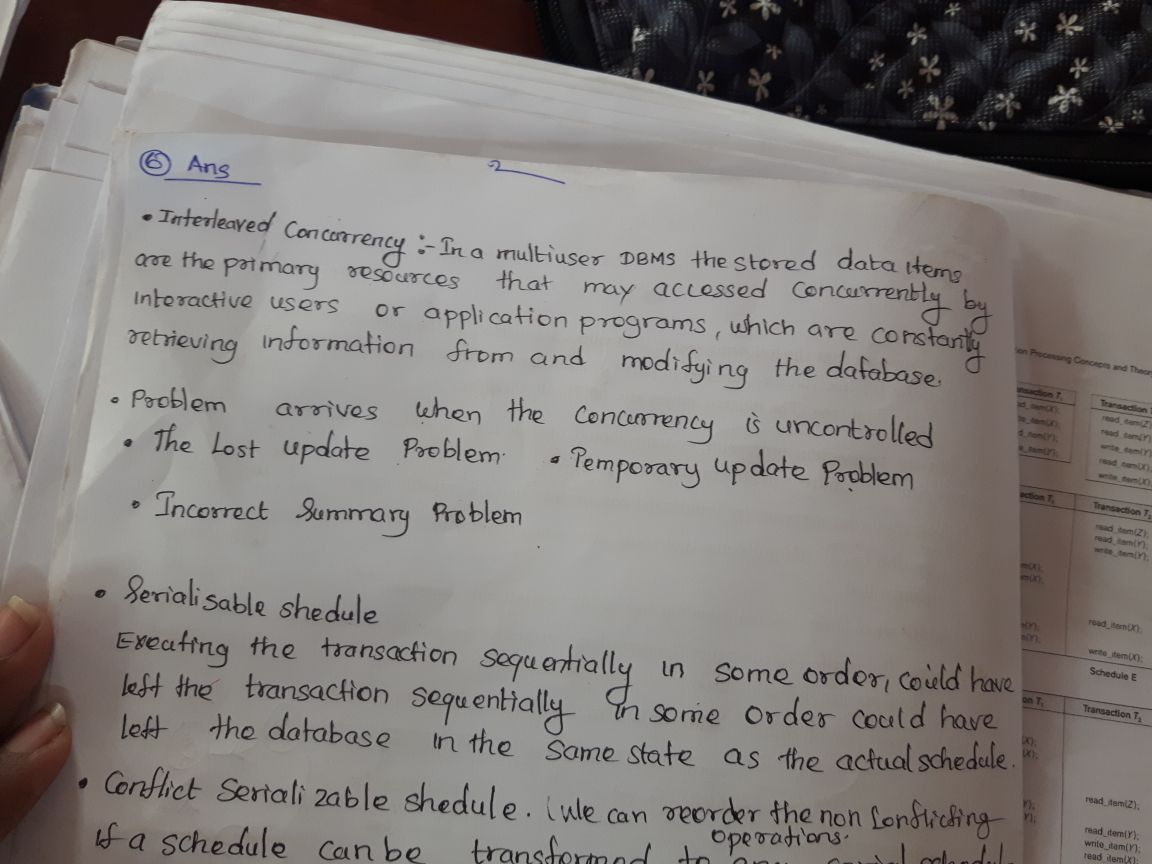 ⑥ Ans
2
• Interleaved Concurrency :- In a multiuser DBMS the stored data items
are the primary resources that may accessed concurrently by
interactive users or application programs, which are constantly
retrieving information from and modifying the database.
• Problem arrives when the concurrency is uncontrolled
• The Lost update Problem. • Pemporary update Problem
• Incorrect Summary Problem
• Serialisable shedule
Execating the transaction sequentially in some order, could have
left the transaction sequentially in some order could have
left the database in the same state as the actual schedule.
• Conflict Serializable shedule. (We can reorder the non Conflicting
operations.
If a schedule can be transformed to any
on Processing Concepts and Theor
ansaction T₁
Transaction
read_item(Z)
read_item(Y)
write_item(Y)
read_item(X)
write_item(X)
action T₁
Transaction T₂
read_item(Z);
read_item(Y);
write_item(Y);
read_item(X);
write_item(X);
Schedule E
on T₁
Transaction T₂
read_item(Z);
read_item(Y);
write_item(Y);
read_item(X);